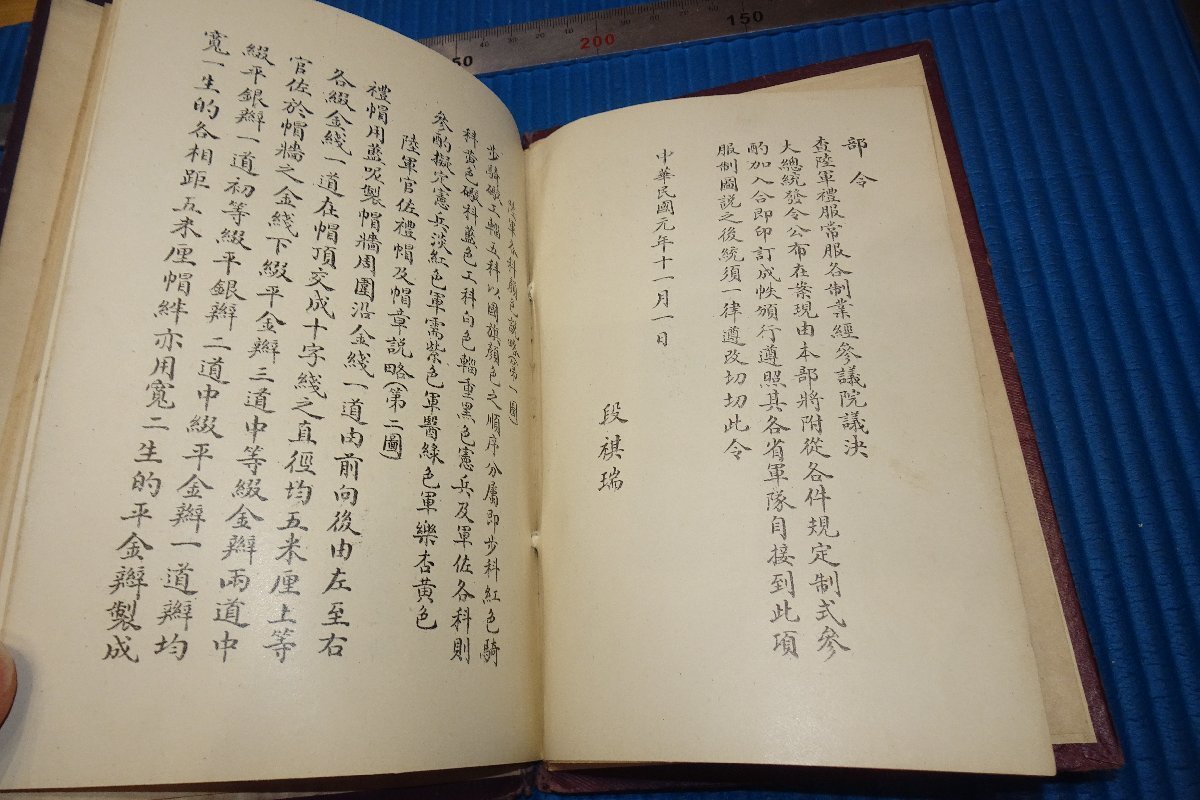 部令
查陸軍禮服常服各制業經參議院議決
大總統發令公布在案現由本部將附從各件規定制式參
酌加入合即印訂成帙頒行遵照其各省軍隊自接到此項
服制圖說之後統須一律遵改切切此令
中華民國元年十一月一日
段祺瑞
陸軍各科顏色說略(第一圖)
步騎礮工輜五科以國旗顏色之順序分屬即步科紅色騎
科黃色礮科藍色工科白色輜重黑色憲兵及軍佐各科則
參酌擬定憲兵淡紅色軍需紫色軍醫綠色軍樂杏黃色
陸軍官佐禮帽及帽章說略(第二圖)
禮帽用藍呢製帽牆周圍沿金綫一道由前向後由左至右
各綴金綫一道在帽頂交成十字綫之直徑均五米厘上等
官佐於帽牆之金綫下綴平金辮三道中等綴金辮兩道中
綴平銀辮一道初等綴平銀辮二道中綴平金辮一道辮均
寬一生的各相距五米厘帽絆亦用寬二生的平金辮製成
50
200
150